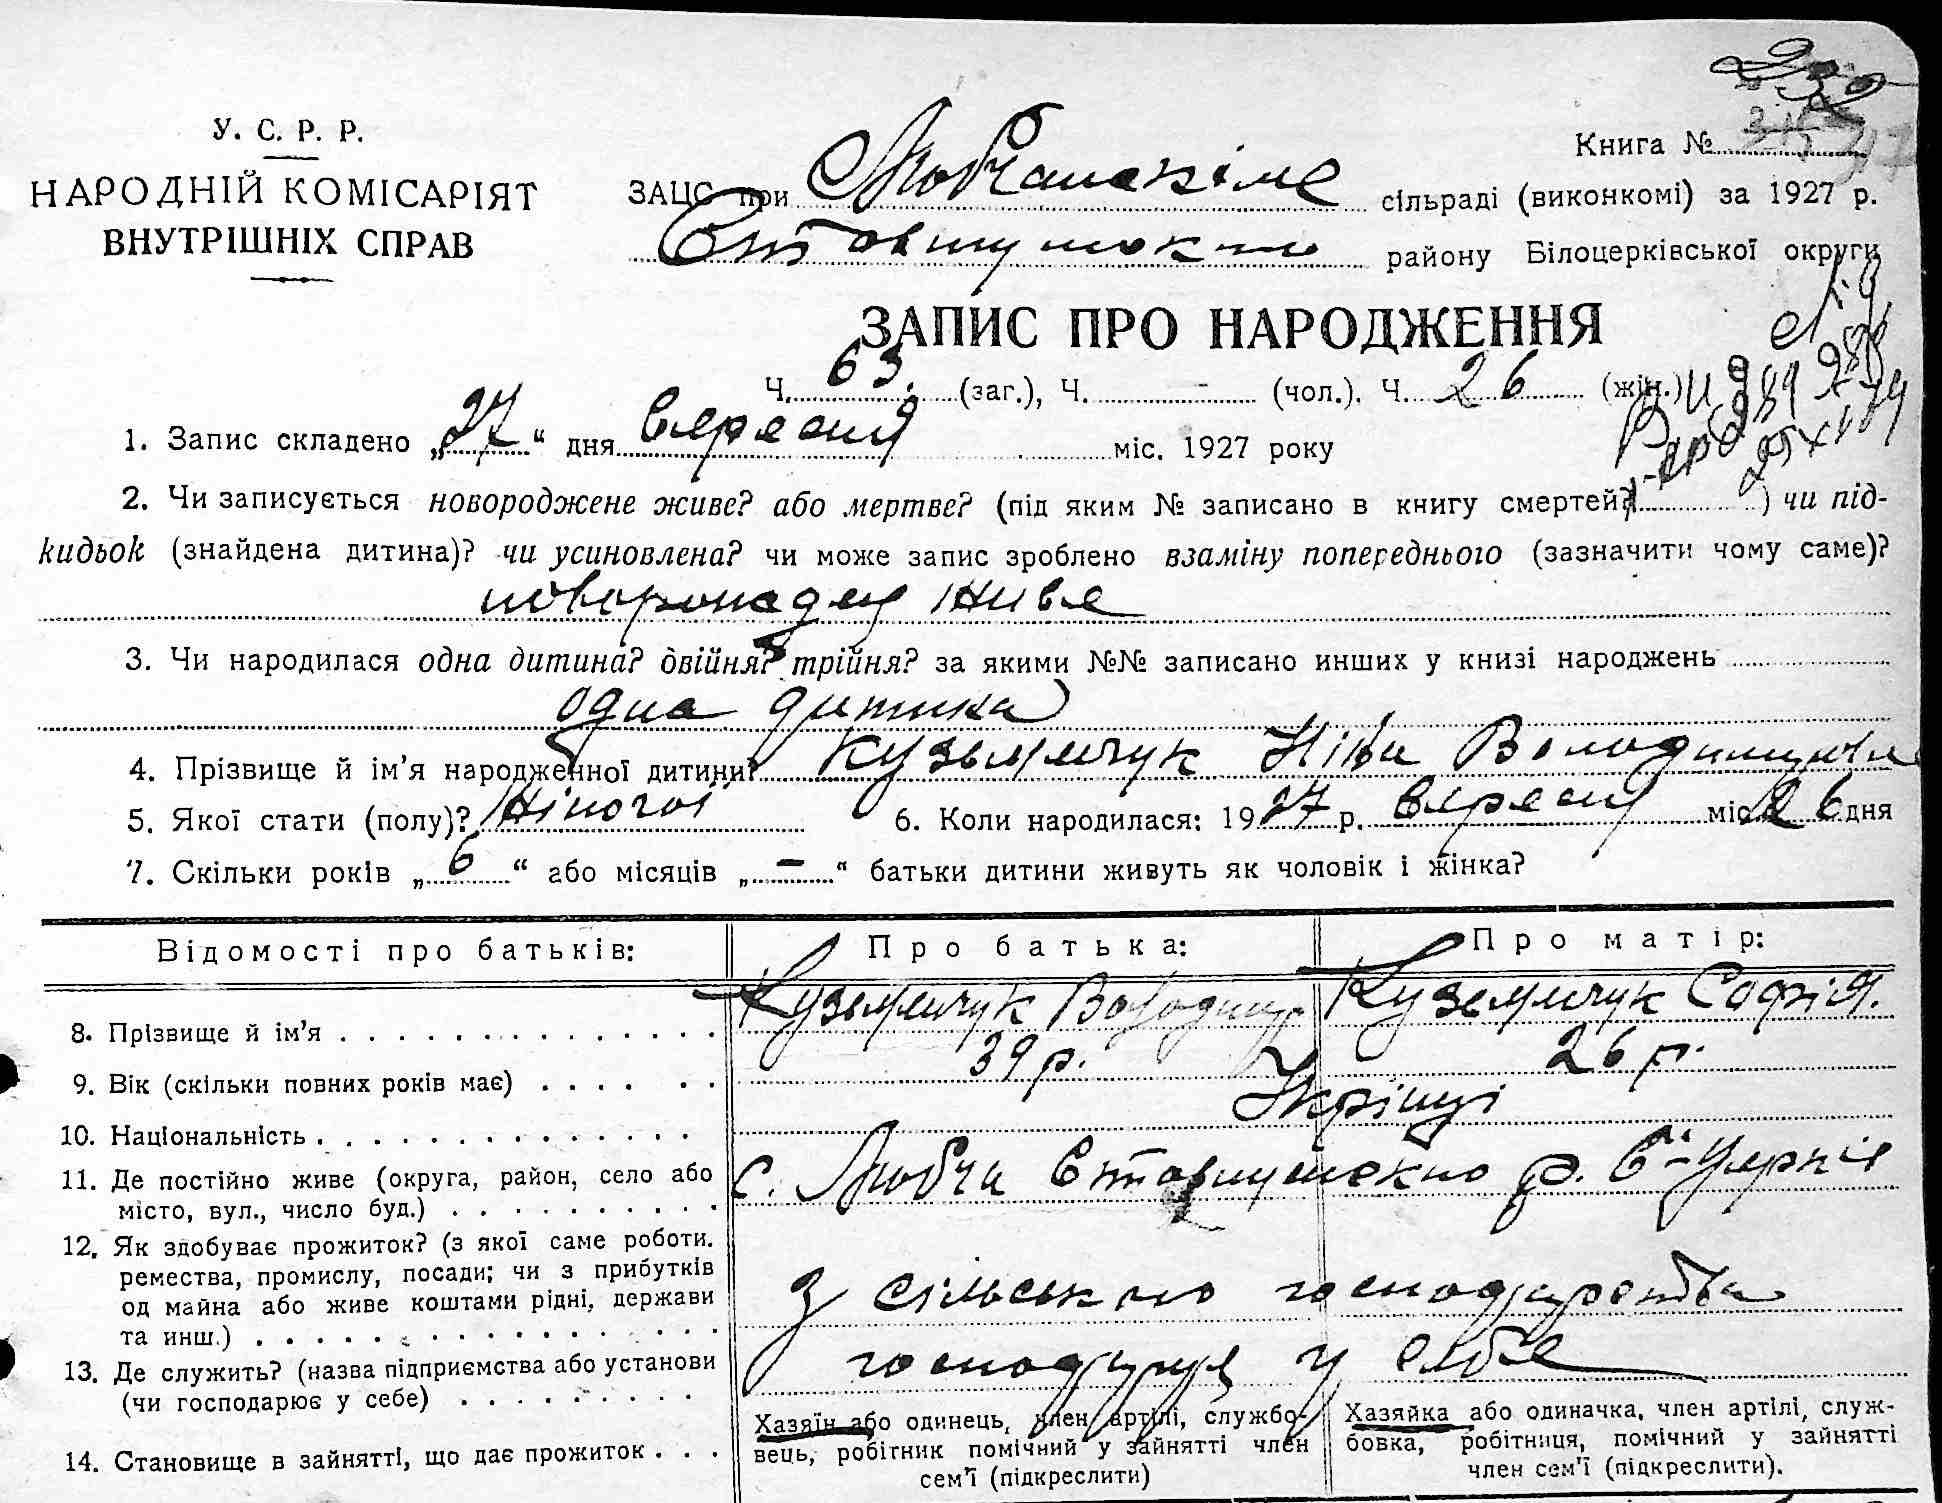 У. С. Р. Р.
НАРОДНІЙ КОМІСАРІЯТ
ВНУТРІШНІХ СПРАВ
Книга №
ЗАЦС при Любчанскіме сільраді (виконкомі) за 1927 р.
району Білоцерківської округи
ЗАПИС ПРО НАРОДЖЕННЯ
Ч. 63. (заг.), Ч. - (чол.). Ч. 26 (жін.)
1. Запис складено „27“ дня вересня міс. 1927 року
2. Чи записується новороджене живе? або мертве? (під яким № записано в книгу смертей? ) чи під-
кидьок (знайдена дитина)? чи усиновлена? чи може запис зроблено взаміну попереднього (зазначити чому саме)?
живе
3. Чи народилася одна дитина? двійня? трійня? за якими №№ записано инших у книзі народжень
одна дитина
4. Прізвище й ім'я народженної дитини? Кузьмичук Ніна
5. Якої стати (полу)? Жіночої 6. Коли народилася: 1927 р. вересня міс. 26 дня
7. Скільки років „6“ або місяців „-“ батьки дитини живуть як чоловік і жінка?
Відомості про батьків: Про батька: Про матір:
8. Прізвище й ім'я Кузьмичук Володимир Кузьмичук Софія.
9. Вік (скільки повних років має) 39 р. 26 р.
10. Національність Украінці
11. Де постійно живе (округа, район, село або
місто, вул., число буд.) с. Любча
12. Як здобуває прожиток? (з якої саме роботи.
ремества, промислу, посади; чи з прибутків
од майна або живе коштами рідні, держави
та инш.) З сільського господарства
13. Де служить? (назва підприємства або установи
(чи господарює у себе) господарує у себе
14. Становище в зайнятті, що дає прожиток
Хазяїн або одинець, член артілі, службо-
вець, робітник помічний у зайнятті член
сем'ї (підкреслити)
Хазяйка або одиначка, член артілі, служ-
бовка, робітниця, помічний у зайнятті
член сем'ї (підкреслити).